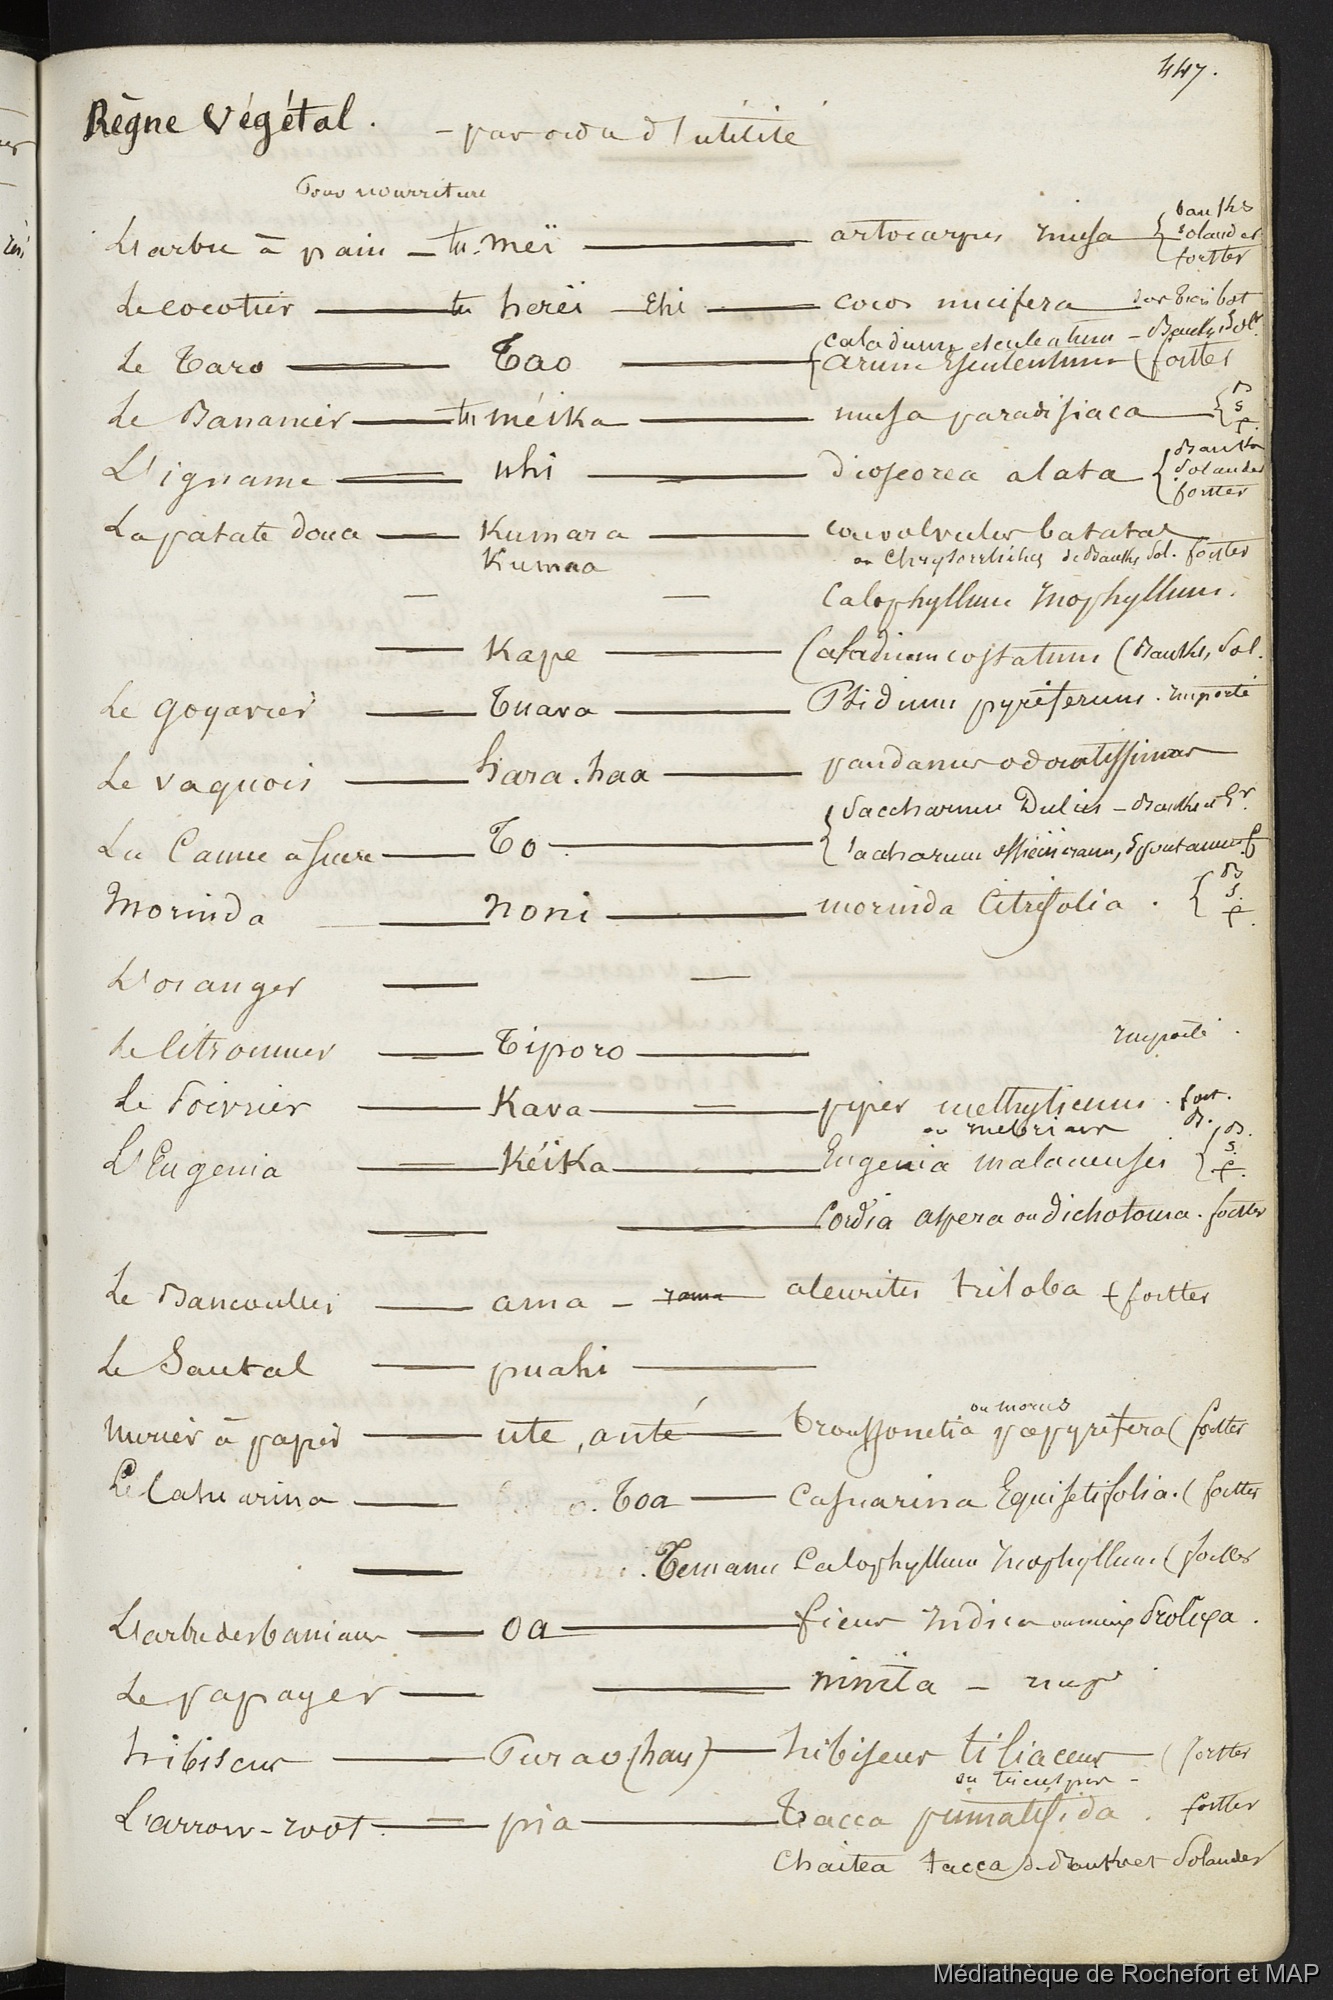 447.
Règne Végétal. - par ordre d'utilité
Pour nourriture
L'arbre à pain - tu. meï artocarpus incisa { banks solander forster
Le cocotier tu hereï - ehi cocos nucifera
Le Taro Tao { caladium esculentum - Banks, Solr arum Esculentum ( forster
Le Bananier tu méika musa paradisiaca { B S f.
L'igname uhi dioscorea alata { Banks Solander forster
La patate douce Kumara convolvulus batatas
Kumaa ou Chrysorrhizus de Banks Sol. forster
Calophyllum Inophyllum.
Kape Caladium costatum (Banks, Sol.
Le goyavier Tuava Psidium pyriferum. importé
Le vaquois hara. haa pandanus odoratissimus
La Canne a sucre To { Saccharum Dulcis - Banks et Sr. sacharum officinarum, Spontaneum f
Morinda noni morinda Citrifolia. { B S. f.
L'oranger
Le Citronnier Tiporo importé
Le Poivrier Kava piper methysticum. fort.
ou inebrians B.
L'Eugenia KéiKa Eugenia malaccensis { B. S. f.
Cordia aspera ou dichotoma. forster
Le Bancoulier ama - rama aleurites triloba ( forster
Le Santal puahi
ou morus
Murier à papier ute, auté Broussonetia papyrifera ( forster
Le Casuarina Toa Casuarina Equisetifolia. ( forster
Temanu Calophyllum Inophyllum ( forster
L'arbre des banians oa ficus indica ou mieux Prolixa.
Le papayer ninita - imp
hibiscus Purao (hau) hibiscus tiliaceus ( forster
ou tricuspis -
L'arrow-root. pia Tacca pinnatifida. forster
Chaitea tacca de Banks et Solander
Médiathèque de Rochefort et MAP